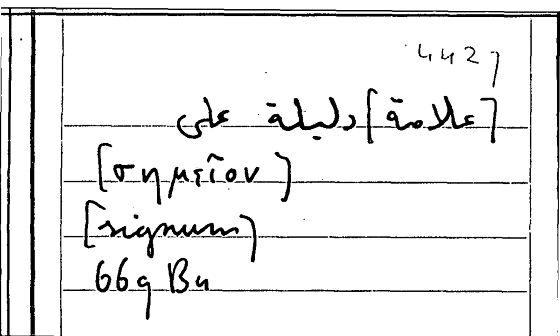 4427
[علامة] دليلة على
[σημεῖον]
[signum]
669 Bu